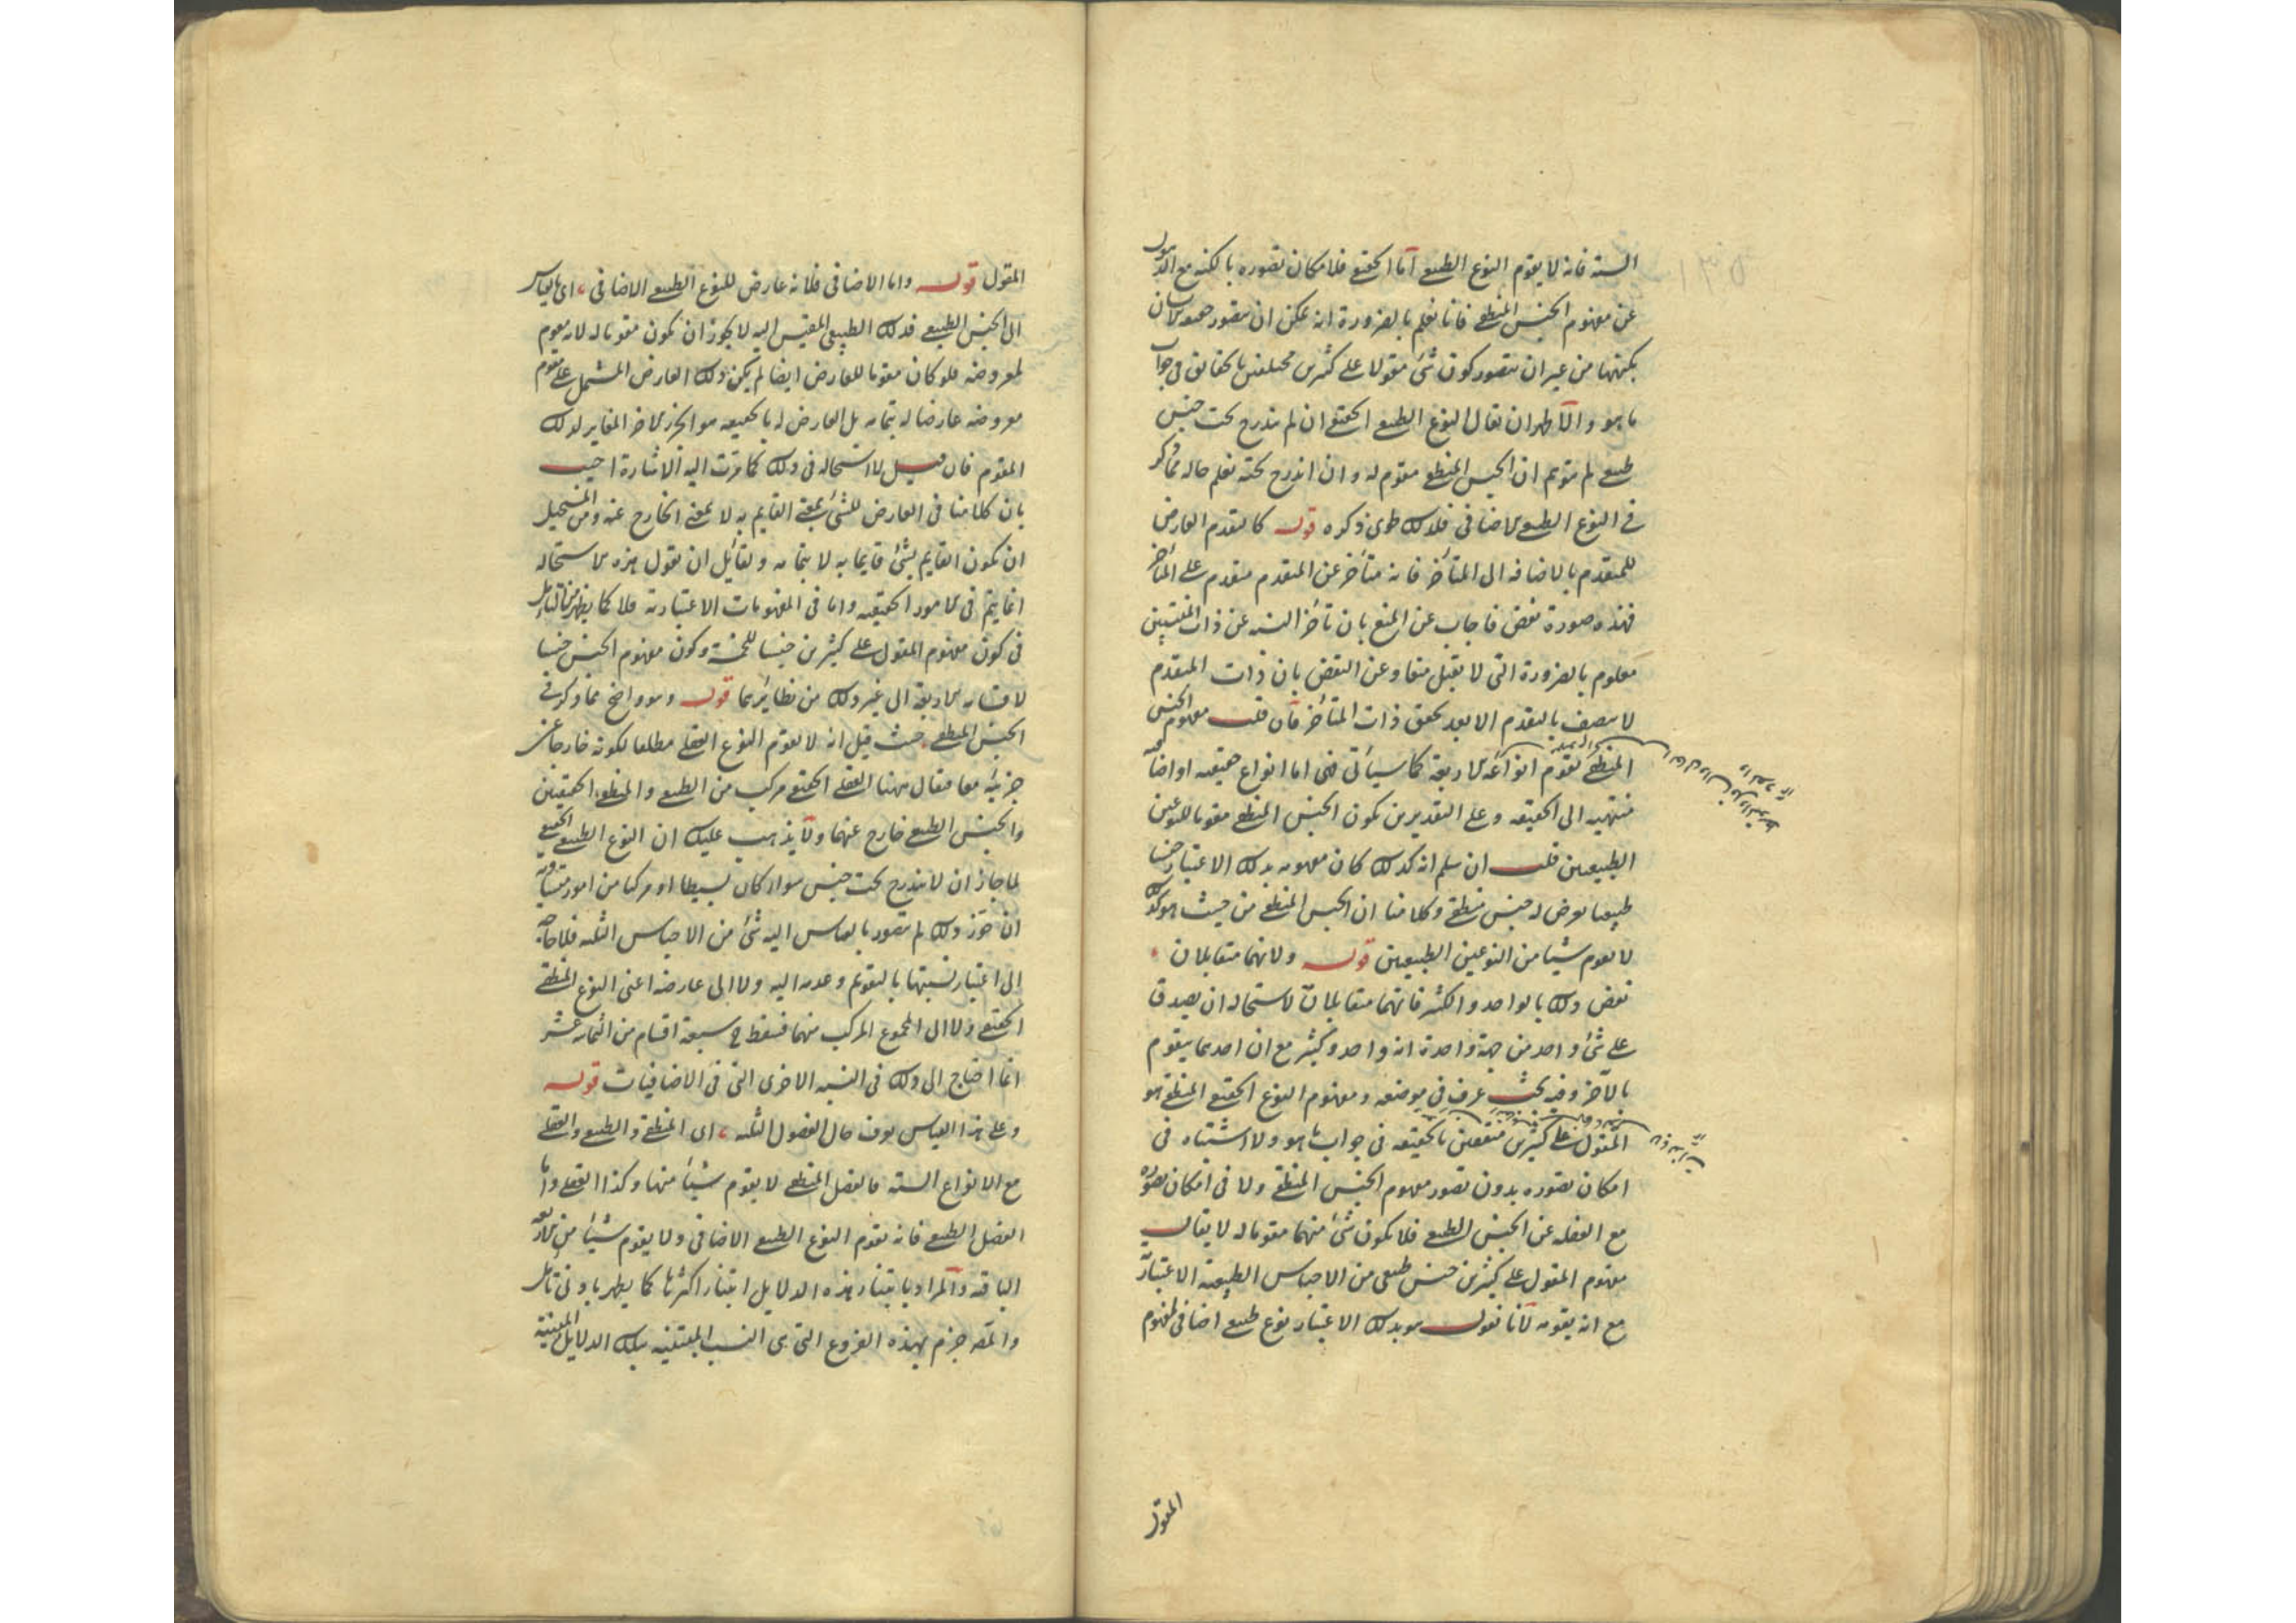 الستة فانه لا يقوم النوع الطبيعى اما الحقيقى فلامكان تصوره بالكنه مع الذهول
عن مفهوم الجنس المنطقى فانا نعلم بالضرورة انه يمكن ان يتصور
بكنهها من غير ان يتصور كون شئ مقولا على كثيرين مختلفين بالحقائق فى جواب
ما هو والاظهر ان يقال النوع الطبيعى الحقيقى ان لم يندرج تحت جنس
طبيعى لم يتوهم ان الجنس المنطقى مقوم له وان اندرج تحته تعلم حاله مما ذكر
فى النوع الطبيعى الاضافى فلذلك طوى ذكره قوله كالمتقدم العارض
للمتقدم بالاضافه الى المتأخر فانه متأخر عن المتقدم متقدم على المتأخر
فهذه صورة نقض فاجاب عن المنع بان تأخر النسبه عن ذات المنتسبين
معلوم بالضرورة التى لا يقبل منعا وعن النقض بان ذات المتقدم
لا يتصف بالتقدم الا بعد تحقق ذات المتأخر فان قلت مفهوم الجنس
المنطقى يقوم انواعه الاربعة كما سيأتى فهى اما انواع حقيقيه او اضافيه
منتهيه الى الحقيقيه وعلى التقديرين يكون الجنس المنطقى مقوما للنوعين
الطبيعيين قلت ان سلم انه كذلك كان مفهومه بذلك الاعتبار جنسا
طبيعيا يعرض له جنس منطقى وكلامنا ان الجنس المنطقى من حيث هو كذلك
لا يقوم شيئا من النوعين الطبيعيين قوله ولانهما متقابلان
نقض ذلك بالواحد والكثير فانهما متقابلان لاستحاله ان يصدق
على شئ واحد من جهة واحدة انه واحد وكثير مع ان احدهما يتقوم
بالآخر وفيه بحث عرف فى موضعه ومفهوم النوع الحقيقى المنطقى هو
المقول على كثيرين متفقين بالحقيقه فى جواب ما هو ولا اشتباه فى
امكان تصوره بدون تصور مفهوم الجنس المنطقى ولا فى امكان تصوره
مع الغفله عن الجنس الطبيعى فلا يكون شئ منهما مقوما له لا يقال
مفهوم المقول على كثيرين جنس طبيعى من الاجناس الطبيعية الاعتبارية
مع انه يقومه لانا نقول هو بذلك الاعتبار نوع طبيعى اضافى لمفهوم
المقول
المقول قوله واما الاضافى فلانه عارض للنوع الطبيعى الاضافى اى بالقياس
الى الجنس الطبيعى فذلك الطبيعى المقيس اليه لا يجوز ان يكون مقوما له لانه مقوم
لمعروضه فلو كان مقوما للعارض ايضا لم يكن ذلك العارض المشتمل على مقوم
معروضه عارضا له بتمامه بل العارض له بالحقيقه هو الجزء الاخر المغاير لذلك
المقوم فان قيل لا استحاله فى ذلك كما مرت اليه الاشارة اجيب
بان كلامنا فى العارض للشئ بمعنى القايم به لا بمعنى الخارج عنه ومن المستحيل
ان يكون القايم بشئ قايما به لا بتمامه ولقائل ان يقول هذه الاستحاله
انما يتم فى الامور الحقيقيه واما فى المفهومات الاعتبارية فلا كما يظهر من التأمل
فى كون مفهوم المقول على كثيرين جنسا للخمسة وكون مفهوم الجنس جنسا
لاقسامه الاربعة الى غير ذلك من نظايرهما قوله وهو واضح مما ذكر فى
الجنس المنطقى حيث قيل انه لا يقوم النوع العقلى مطلقا لكونه خارجا عن
جزئيه معا فقال ههنا العقلى الحقيقى مركب من الطبيعى والمنطقى الحقيقيين
والجنس الطبيعى خارج عنهما ولا يذهب عليك ان النوع الطبيعى الحقيقى
لما جاز ان لا يندرج تحت جنس سواء كان بسيطا او مركبا من امور متساوية
ان جوز ذلك لم يتصور بالقياس اليه شئ من الاجناس الثلثه فلا حاجة
الى اعتبار نسبتها بالتقويم وعدمه اليه ولا الى عارضه اعنى النوع المنطقى
الحقيقى ولا الى المجموع المركب منهما فسقط ح سبعة اقسام من الثمانيه عشر
انما احتاج الى ذلك فى النسبه الاخرى التى فى الاضافيات قوله
وعلى هذا القياس يعرف حال الفصول الثلثه اى المنطقى والطبيعى والعقلى
مع الانواع الستة فالفصل المنطقى لا يقوم شيئا منها وكذا العقلى واما
الفصل الطبيعى فانه يقوم النوع الطبيعى الاضافى ولا يقوم شيئا من الاربعة
الباقيه والمراد بابتناء هذه الدلايل ابتناء اكثرها كما يظهر بادنى تأمل
والمص جزم بهذه الفروع التى هى النسب المبتنيه بتلك الدلايل